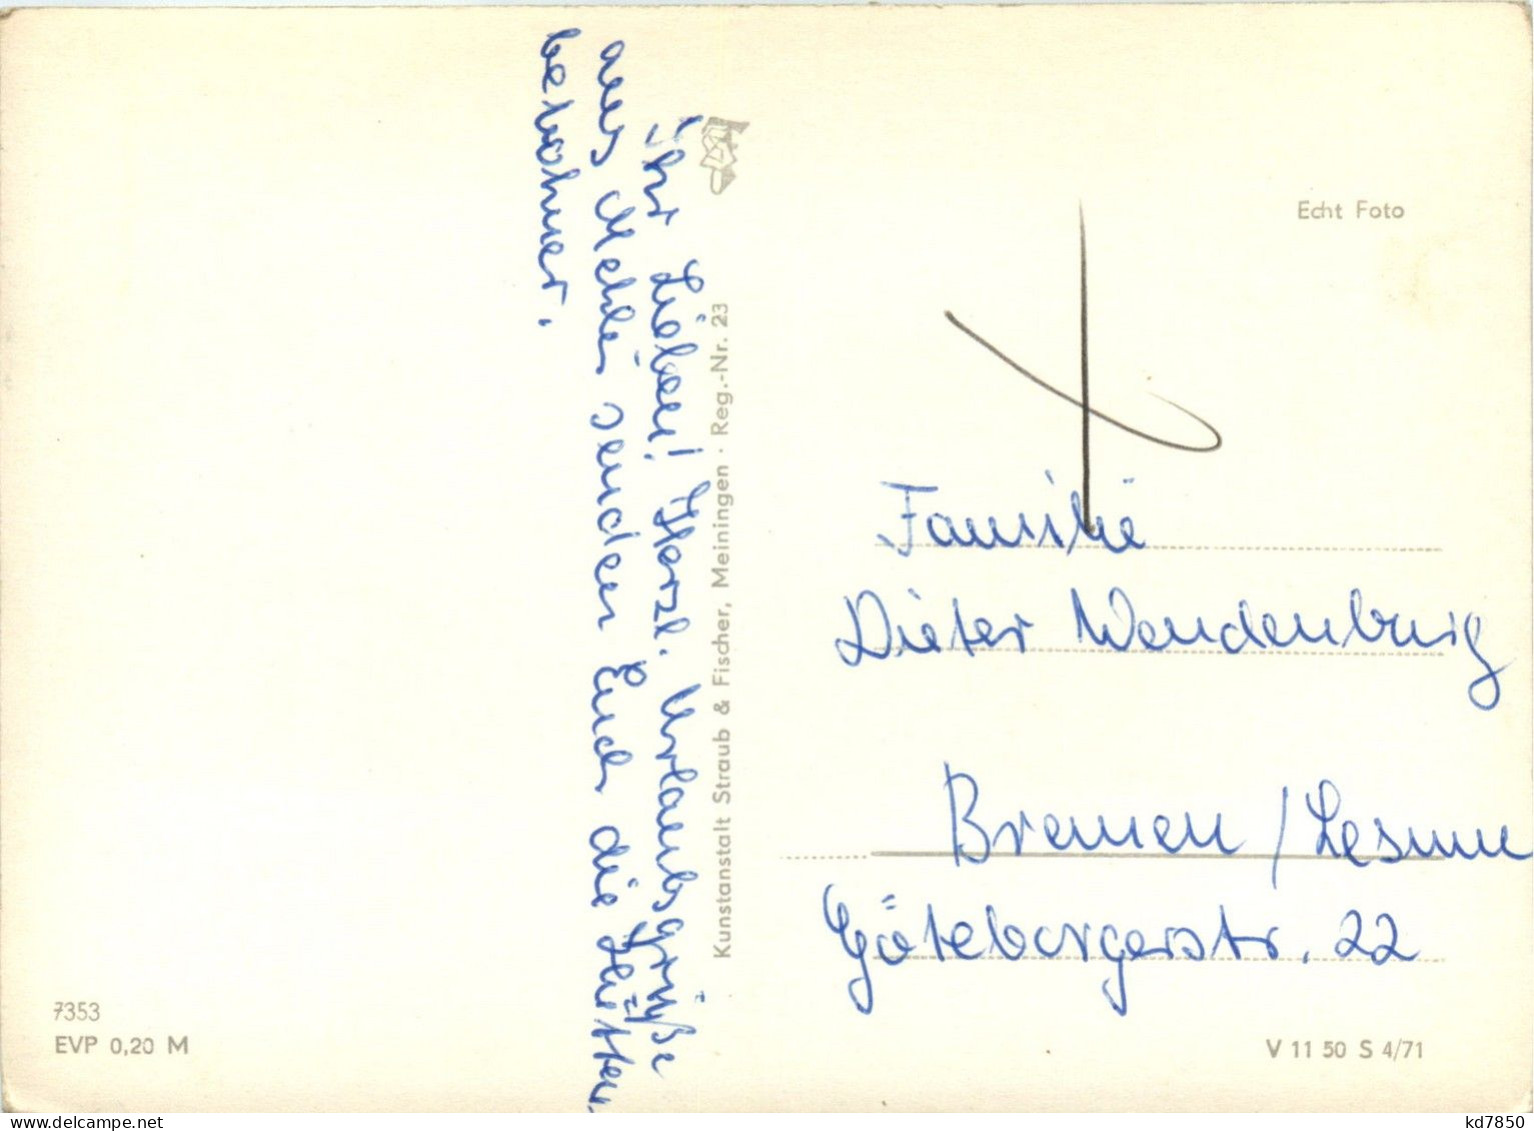 Ihr Lieben! Herzl. Urlaubsgrüße
aus Mehlis senden Euch die Hütten
bewohner.
Kunstanstalt Straub & Fischer, Meiningen · Reg.-Nr. 23
Echt Foto
Familie
Dieter Wendenburg
Bremen / Lesum
Göteborgerstr. 22
7353
EVP 0,20 M
V 11 50 S 4/71
kd7850